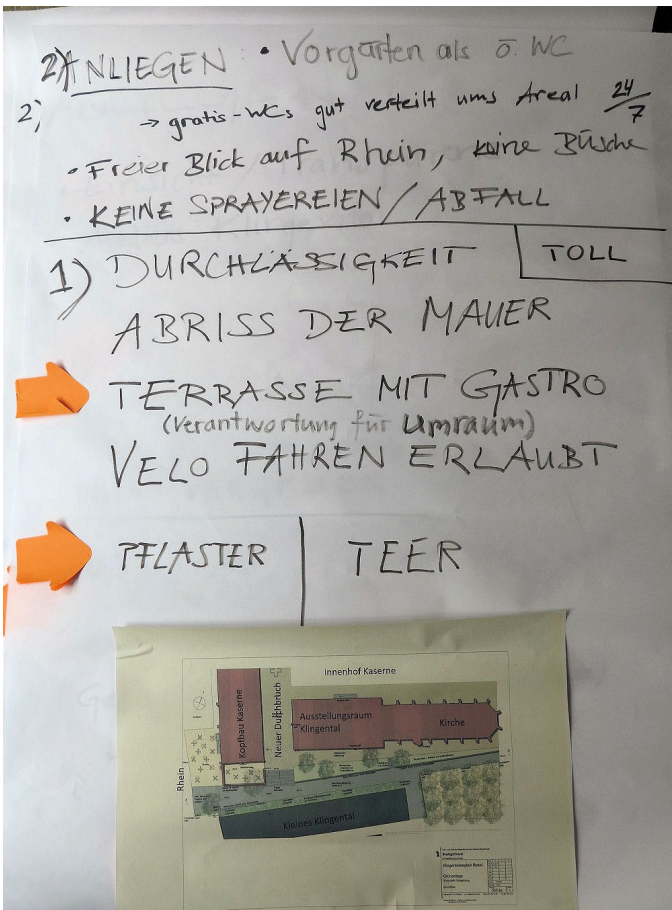 2) ANLIEGEN • Vorgärten als ö. WC
2) → gratis-WCs gut verteilt ums Areal 24/7
• Freier Blick auf Rhein, keine Büsche
• KEINE SPRAYEREIEN / ABFALL
1) DURCHLÄSSIGKEIT TOLL
ABRISS DER MAUER
TERRASSE MIT GASTRO
(Verantwortung für Umraum)
VELO FAHREN ERLAUBT
PFLASTER | TEER
Innenhof Kaserne
Kopfbau Kaserne
Neuer Durchbruch
Ausstellungsraum
Klingental
Kirche
Rhein
Kleines Klingental